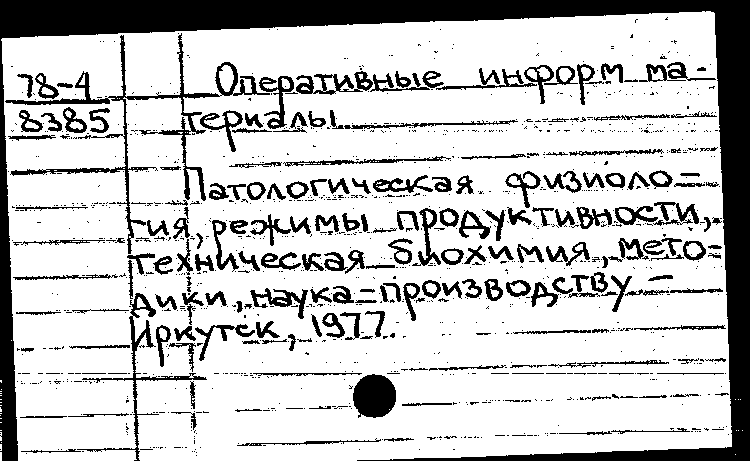 78-4
8385
Оперативные информ ма-
териалы
Патологическая физиоло=
гия, режимы продуктивности,
техническая биохимия, мето=
дики, наука=производству –
Иркутск, 1977.